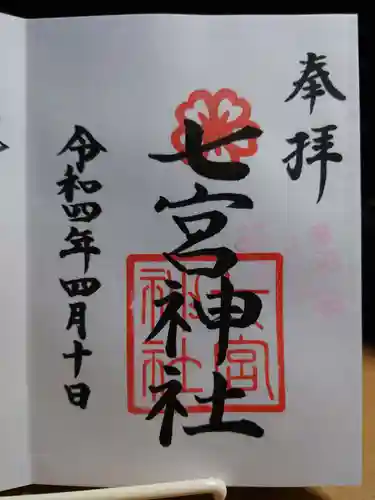 奉拝
七宮神社
七宮
神社
令和四年四月十日